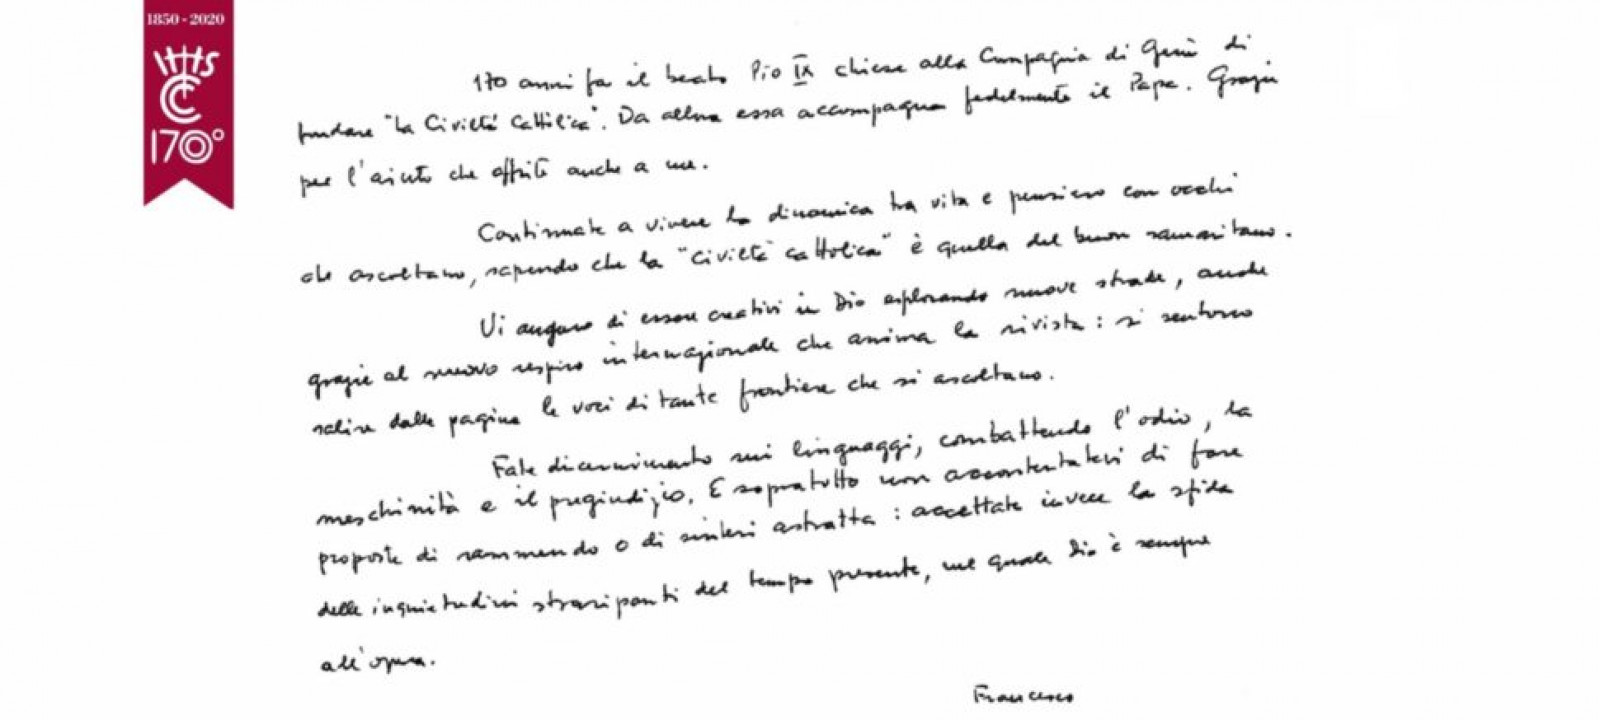 1850 - 2020
IHS
CC
170°
170 anni fa il beato Pio IX chiese alla Compagnia di Gesù di
fondare "La Civiltà Cattolica". Da allora essa accompagna fedelmente il Papa. Grazie
per l'aiuto che offrite anche a me.
Continuate a vivere la dinamica tra vita e pensiero con occhi
che ascoltano, sapendo che la "civiltà cattolica" è quella del buon samaritano.
Vi auguro di essere creativi in Dio esplorando nuove strade, anche
grazie al nuovo respiro internazionale che anima la rivista: si sentono
salire dalle pagine le voci di tante frontiere che si ascoltano.
Fate discernimento sui linguaggi, combattendo l'odio, la
meschinità e il pregiudizio. E sopratutto non accontentatevi di fare
proposte di rammendo o di sintesi astratta: accettate invece la sfida
delle inquietudini straripanti del tempo presente, nel quale Dio è sempre
all'opera.
Francesco